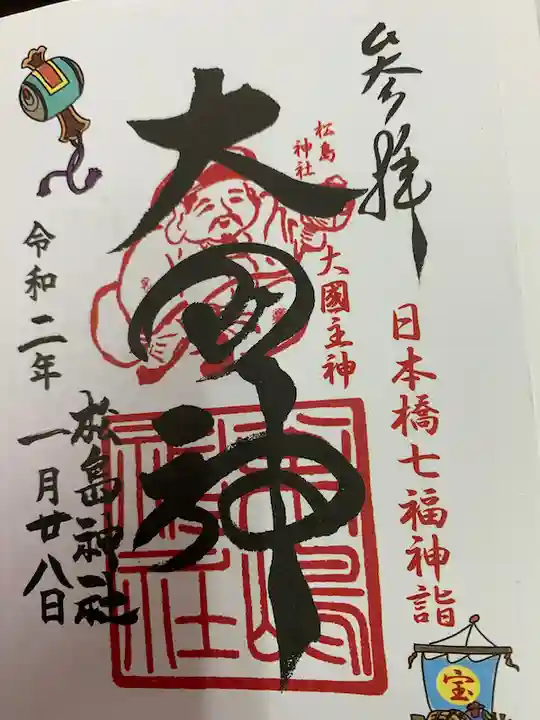 参拝
日本橋七福神詣
松島
神社
大國主神
大国神
松島神社
松島神社
令和二年 一月廿八日
宝